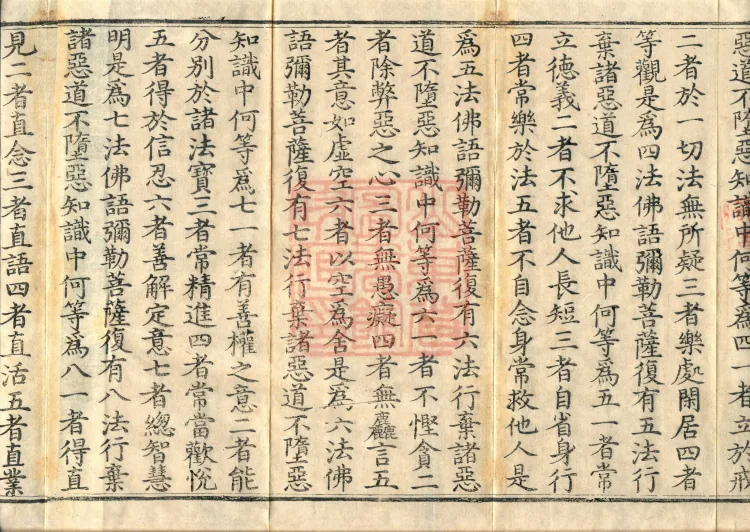 惡道不墮惡知識中何等爲四一者立於戒
二者於一切法無所疑三者樂處閑居四者
等觀是爲四法佛語彌勒菩薩復有五法行
棄諸惡道不墮惡知識中何等爲五一者常
立德義二者不求他人長短三者自省身行
四者常樂於法五者不自念身常救他人是
爲五法佛語彌勒菩薩復有六法行棄諸惡
道不墮惡知識中何等爲六一者不慳貪二
者除弊惡之心三者無愚癡四者無麤言五
者其意如虛空六者以空爲舍是爲六法佛
語彌勒菩薩復有七法行棄諸惡道不墮惡
知識中何等爲七一者有善權之意二者能
分別於諸法寶三者常精進四者常當歡悅
五者得於信忍六者善解定意七者總智慧
明是爲七法佛語彌勒菩薩復有八法行棄
諸惡道不墮惡知識中何等爲八一者得直
見二者直念三者直語四者直活五者直業